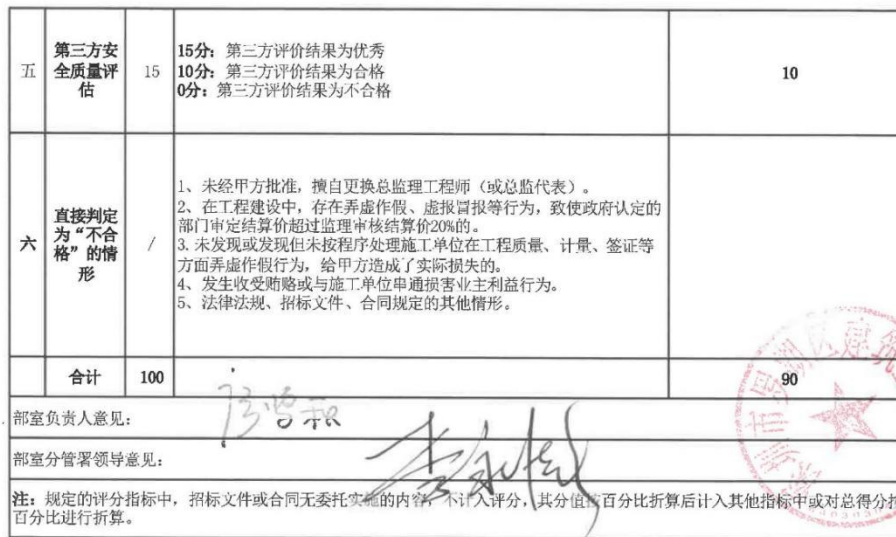 五
第三方安
全质量评
估
15
15分：第三方评价结果为优秀
10分：第三方评价结果为合格
0分：第三方评价结果为不合格
10
六
直接判定
为“不合
格”的情
形
/
1、未经甲方批准，擅自更换总监理工程师（或总监代表）。
2、在工程建设中，存在弄虚作假、虚报冒报等行为，致使政府认定的
部门审定结算价超过监理审核结算价20%的。
3. 未发现或发现但未按程序处理施工单位在工程质量、计量、签证等
方面弄虚作假行为，给甲方造成了实际损失的。
4、发生收受贿赂或与施工单位串通损害业主利益行为。
5、法律法规、招标文件、合同规定的其他情形。
合计
100
90
部室负责人意见：
部室分管署领导意见：
注：规定的评分指标中，招标文件或合同无委托实施的内容，不计入评分，其分值按百分比折算后计入其他指标中或对总得分按
百分比进行折算。